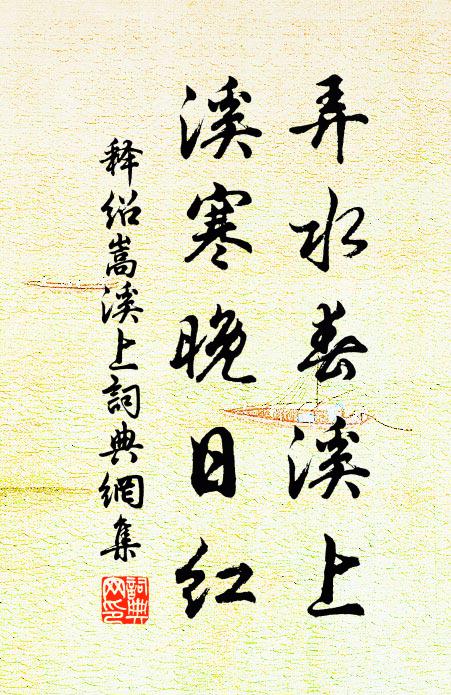 弄水春溪上
溪寒晚日红
释绍嵩溪上詞典網集
詞典网印